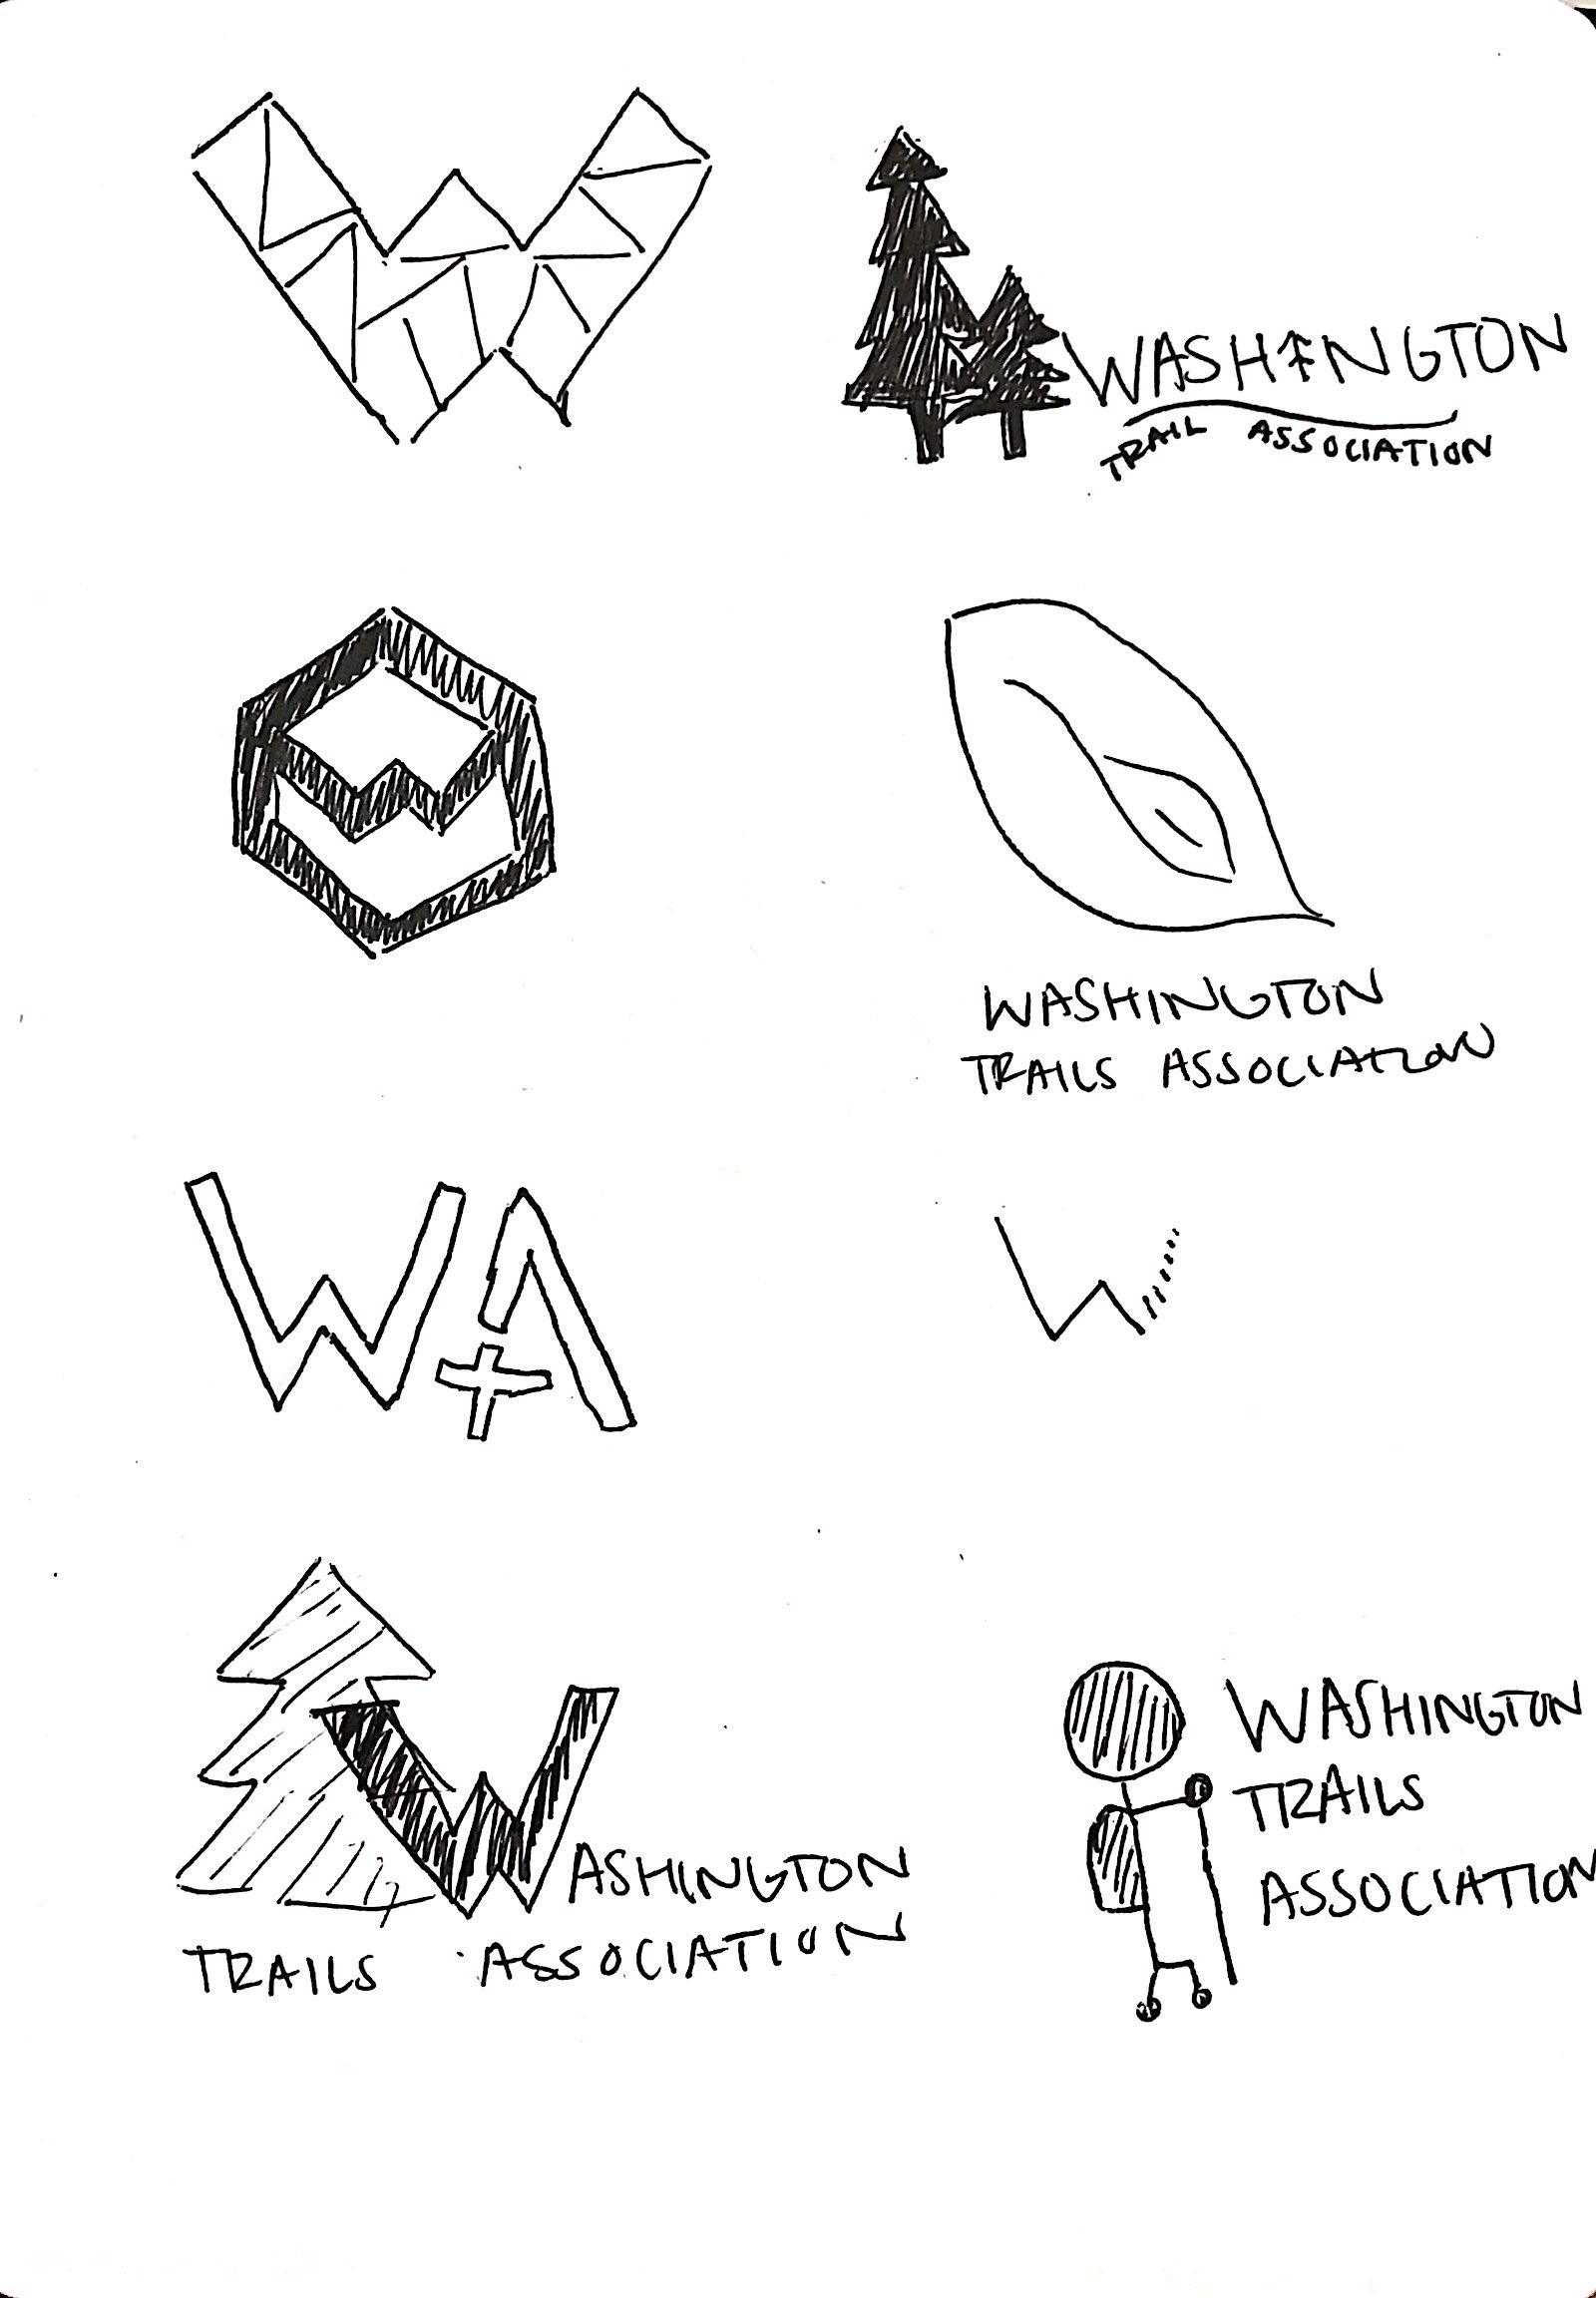 W
WASHINGTON
TRAIL ASSOCIATION
W
WASHINGTON
TRAILS ASSOCIATION
WtA
W
WASHINGTON
TRAILS ASSOCIATION
WASHINGTON
TRAILS
ASSOCIATION